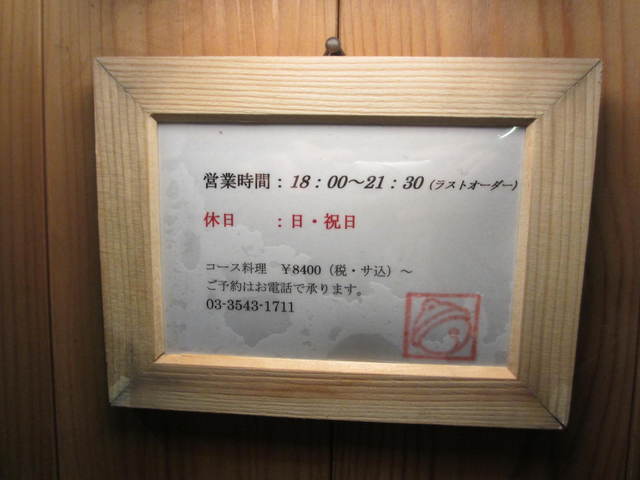 営業時間：18：00～21：30（ラストオーダー）
休日　　：日・祝日
コース料理　￥8400（税・サ込）～
ご予約はお電話で承ります。
03-3543-1711